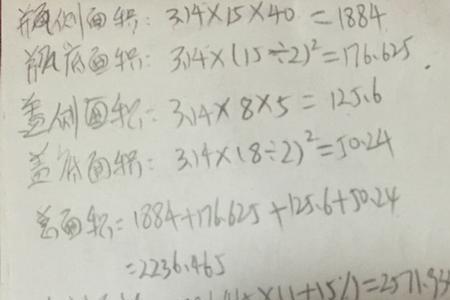 瓶侧面积：3.14×15×40=1884
瓶底面积：3.14×(15÷2)²=176.625
盖侧面积：3.14×8×5=125.6
盖底面积：3.14×(8÷2)²=50.24
总面积=1884+176.625+125.6+50.24
=2236.465
×(1+15%)=2571.93